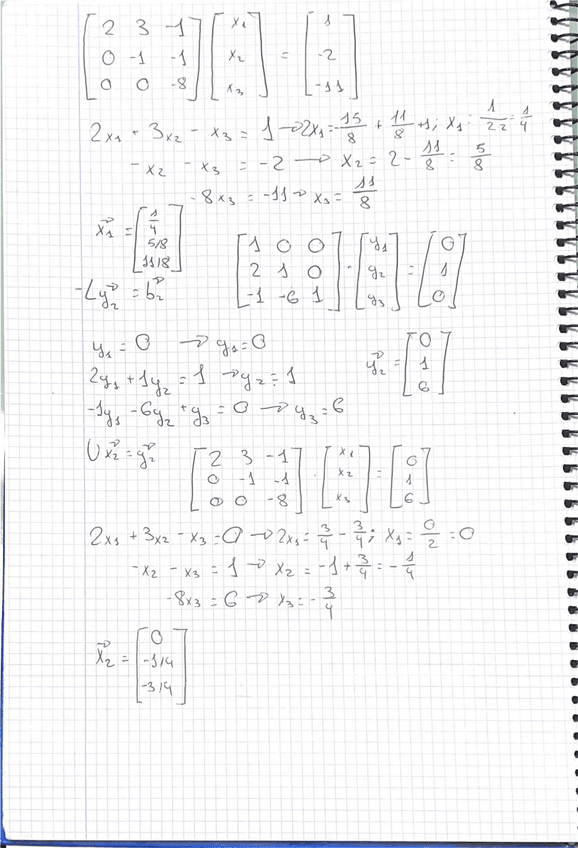 [2 3 -1; 0 -1 -1; 0 0 -8] [x₁; x₂; x₃] = [1; -2; -11]
2x₁ + 3x₂ - x₃ = 1 → 2x₁ = -15/8 + 11/8 + 1; x₁ = 1/2·2 = 1/4
-x₂ - x₃ = -2 → x₂ = 2 - 11/8 = 5/8
-8x₃ = -11 → x₃ = 11/8
x⃗₁ = [1/4; 5/8; 11/8]
-Ly⃗₂ = b⃗₂
[1 0 0; 2 1 0; -1 -6 1] · [y₁; y₂; y₃] = [0; 1; 0]
y₁ = 0 → y₁ = 0
2y₁ + 1y₂ = 1 → y₂ = 1
-1y₁ - 6y₂ + y₃ = 0 → y₃ = 6
y⃗₂ = [0; 1; 6]
Ux⃗₂ = y⃗₂
[2 3 -1; 0 -1 -1; 0 0 -8] · [x₁; x₂; x₃] = [0; 1; 6]
2x₁ + 3x₂ - x₃ = 0 → 2x₁ = 3/4 - 3/4; x₁ = 0/2 = 0
-x₂ - x₃ = 1 → x₂ = -1 + 3/4 = -1/4
-8x₃ = 6 → x₃ = -3/4
x⃗₂ = [0; -1/4; -3/4]